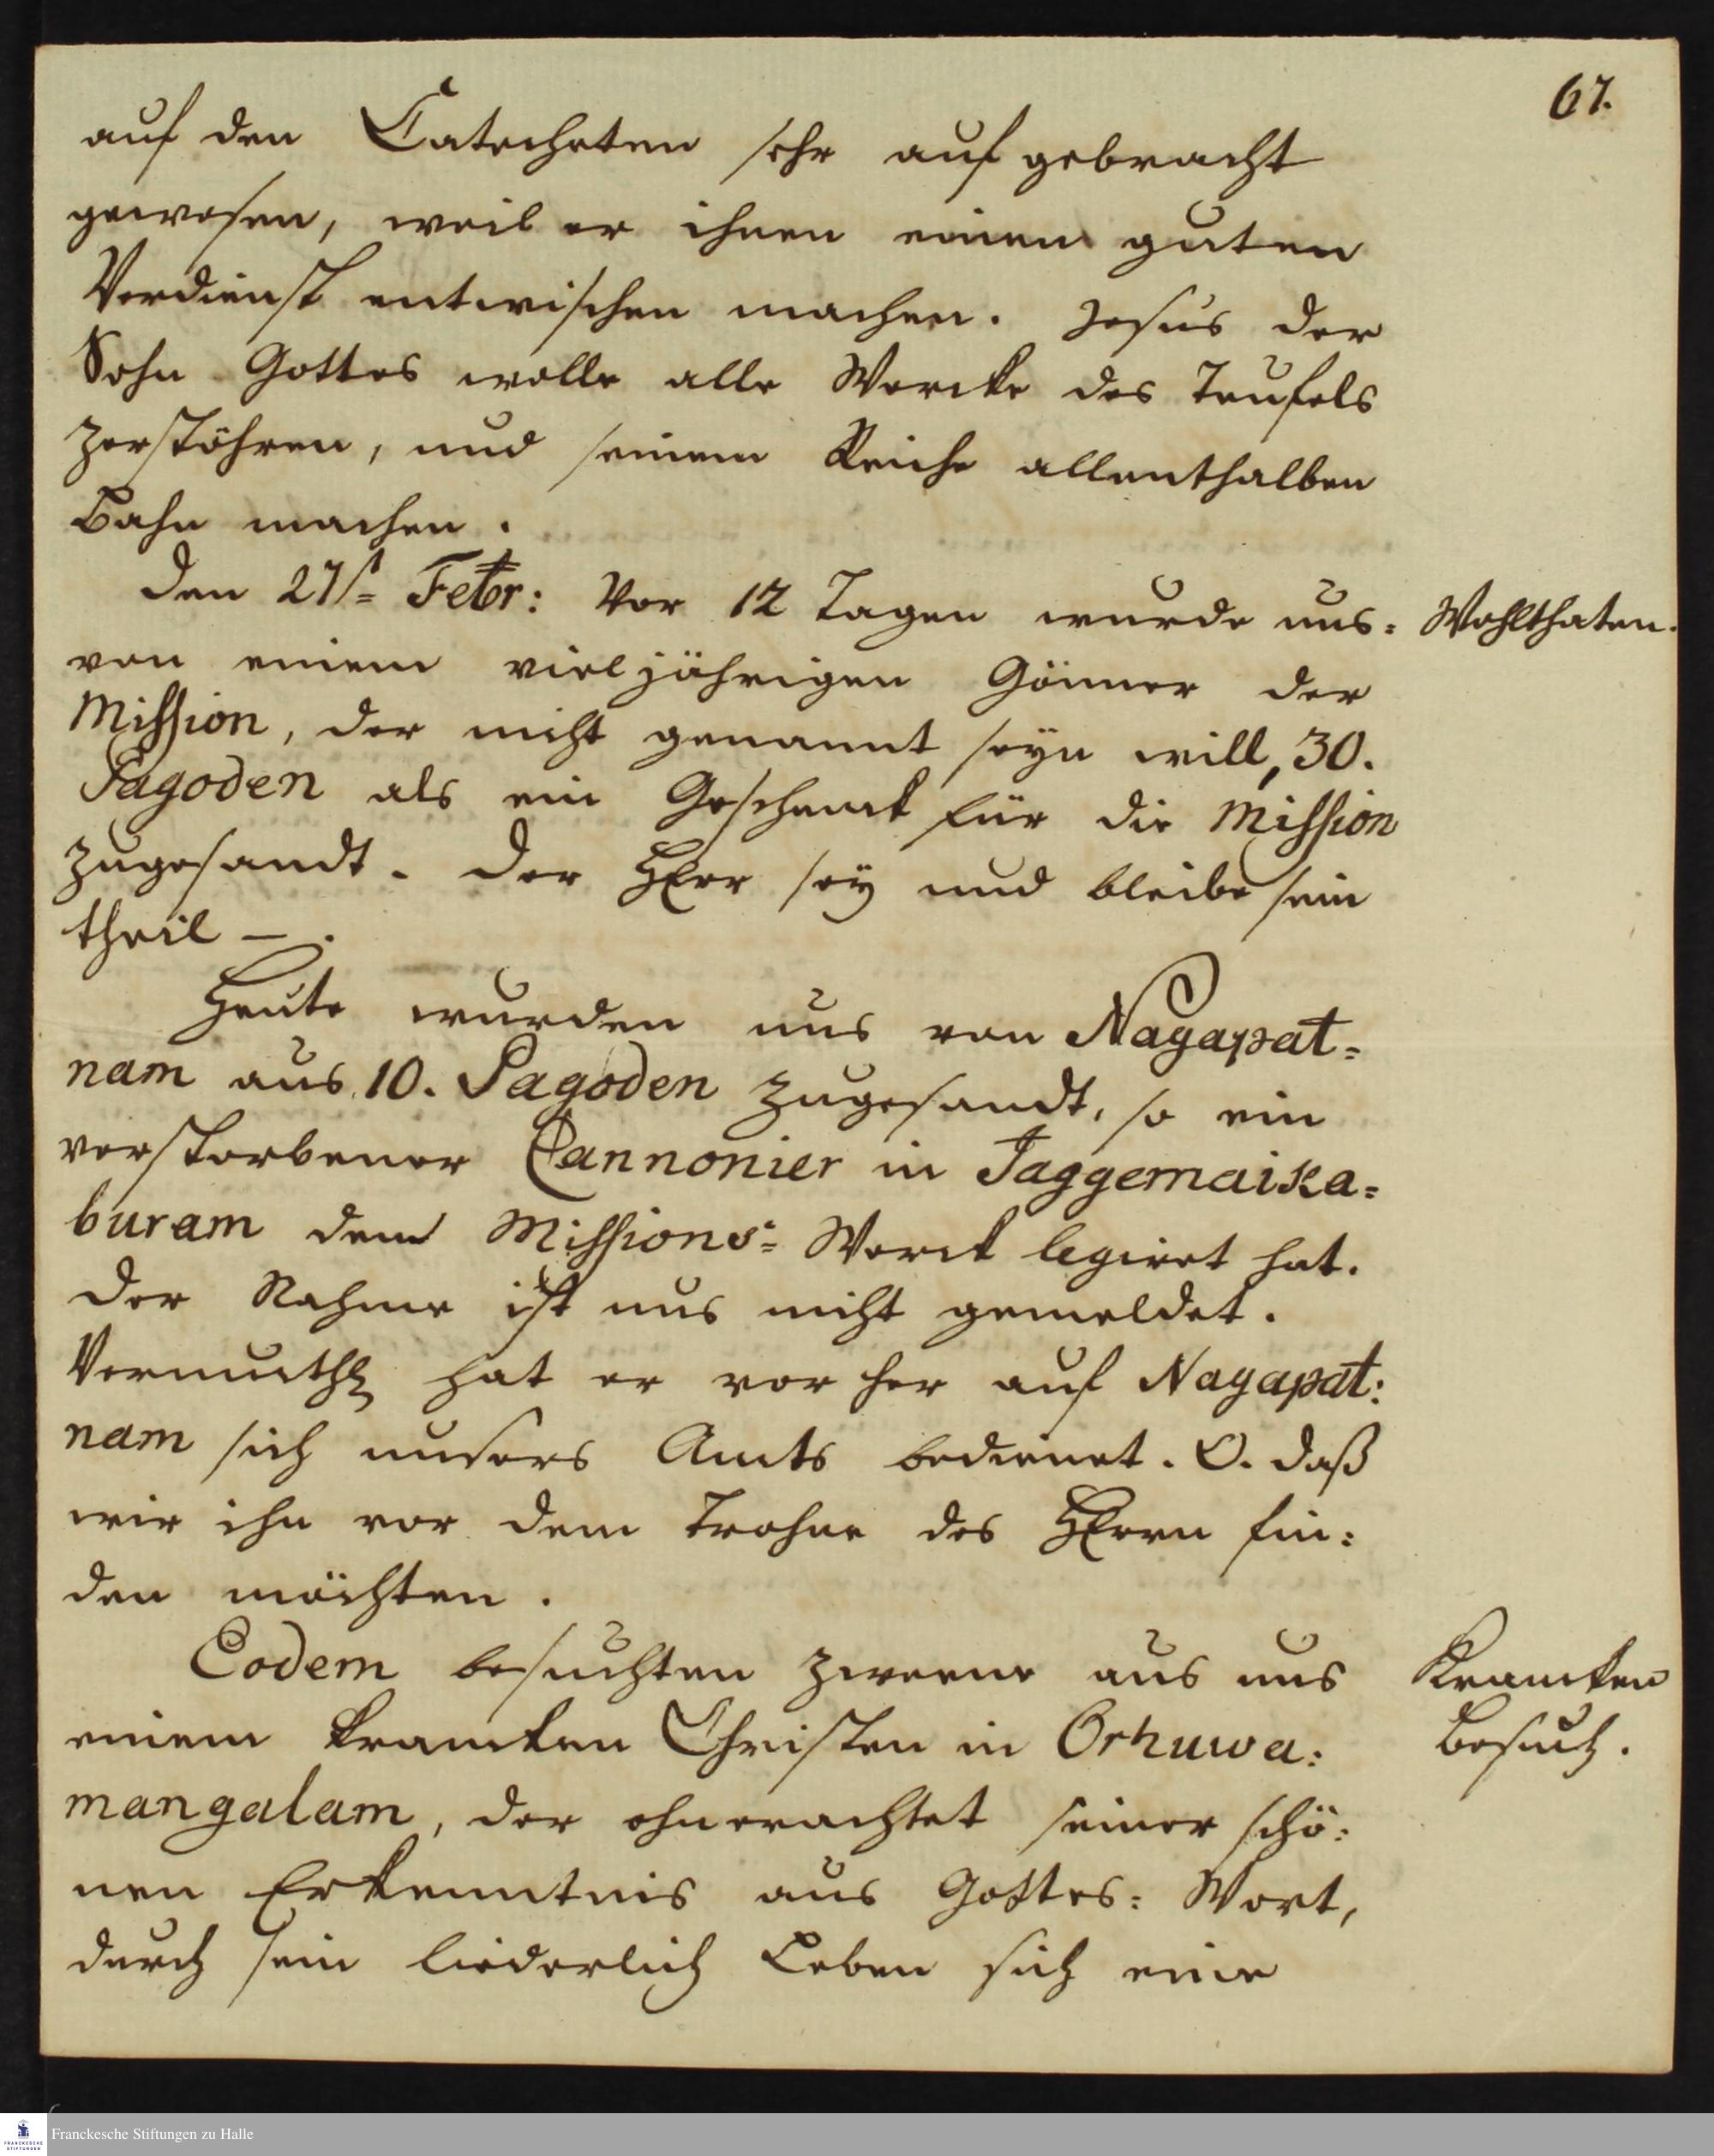 67.
auf den Catecheten sehr auf gebracht
gewesen, weil er ihnen einem guten
Verdienst entwischen machen. Jesus der
Sohn Gottes wolle alle Wercke des Teufels
zerstöhren, und seinem Reiche allenthalben
Bahn machen.
Den 27st= Febr: Vor 12 Tagen wurde uns= Wohlthaten.
von einem vieljährigen Gönner der
Mission, der nicht genannt seyn will, 30.
Pagoden als ein Geschenck für die Mission
zugesandt. Der HErr sey und bleibe sein
theil — .
Heute wurden uns von Nagapat=
nam aus 10. Pagoden zugesandt, so ein
verstorbener Cannonier in Jaggernaika=
buram dem Missions= Werck legiret hat.
Der Nahme ist uns nicht gemeldet.
Vermuthl hat er vor her auf Nagapat:
nam sich unsers Amts bedienet. O. daß
wir ihn vor dem Trohne des HErrn fin:
den möchten.
Eodem besuchten zweene aus uns Krancken
einem krancken Christen in Orhuwa: Besuch.
mangalam, der ohnerachtet seiner schö:
nen Erkenntnis aus Gottes: Wort,
durch sein liederlich Leben sich eine
Franckesche Stiftungen zu Halle